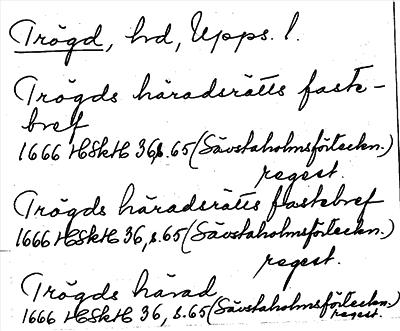 Trögd, hd, Upps. l.
Trögds häradsrätts faste-
bref
1666 HSkH 36, s. 65 (Sävstaholmsförteckn.)
regest.
Trögds häradsrätts fastebref
1666 HSkH 36, s. 65 (Sävstaholmsförteckn.)
regest.
Trögds härad
1666 HSkH 36, s. 65 (Sävstaholmsförteckn.)
regest.